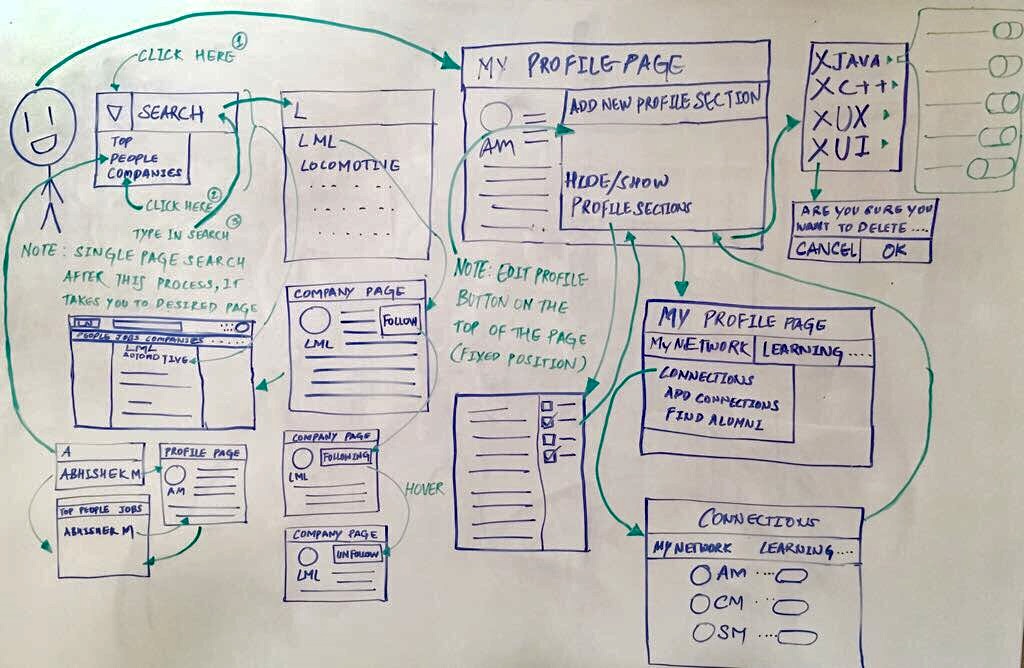 CLICK HERE 1
SEARCH
TOP
PEOPLE
COMPANIES
CLICK HERE 2
3
TYPE IN SEARCH
NOTE: SINGLE PAGE SEARCH
AFTER THIS PROCESS, IT
TAKES YOU TO DESIRED PAGE
L
LML
LOCOMOTIVE
PEOPLE JOBS COMPANIES
LML
AUTOMOTIVE
COMPANY PAGE
FOLLOW
LML
A
ABHISHEK M
PROFILE PAGE
AM
TOP PEOPLE JOBS
ABHISHEK M
COMPANY PAGE
FOLLOWING
LML
HOVER
COMPANY PAGE
UNFOLLOW
LML
MY PROFILE PAGE
ADD NEW PROFILE SECTION
AM
HIDE/SHOW
PROFILE SECTIONS
NOTE: EDIT PROFILE
BUTTON ON THE
TOP OF THE PAGE
(FIXED POSITION)
X JAVA
X C++
X UX
X UI
ARE YOU SURE YOU
WANT TO DELETE ....
CANCEL OK
MY PROFILE PAGE
MY NETWORK LEARNING ....
CONNECTIONS
ADD CONNECTIONS
FIND ALUMNI
CONNECTIONS
MY NETWORK LEARNING ....
AM ....
CM ....
SM ....